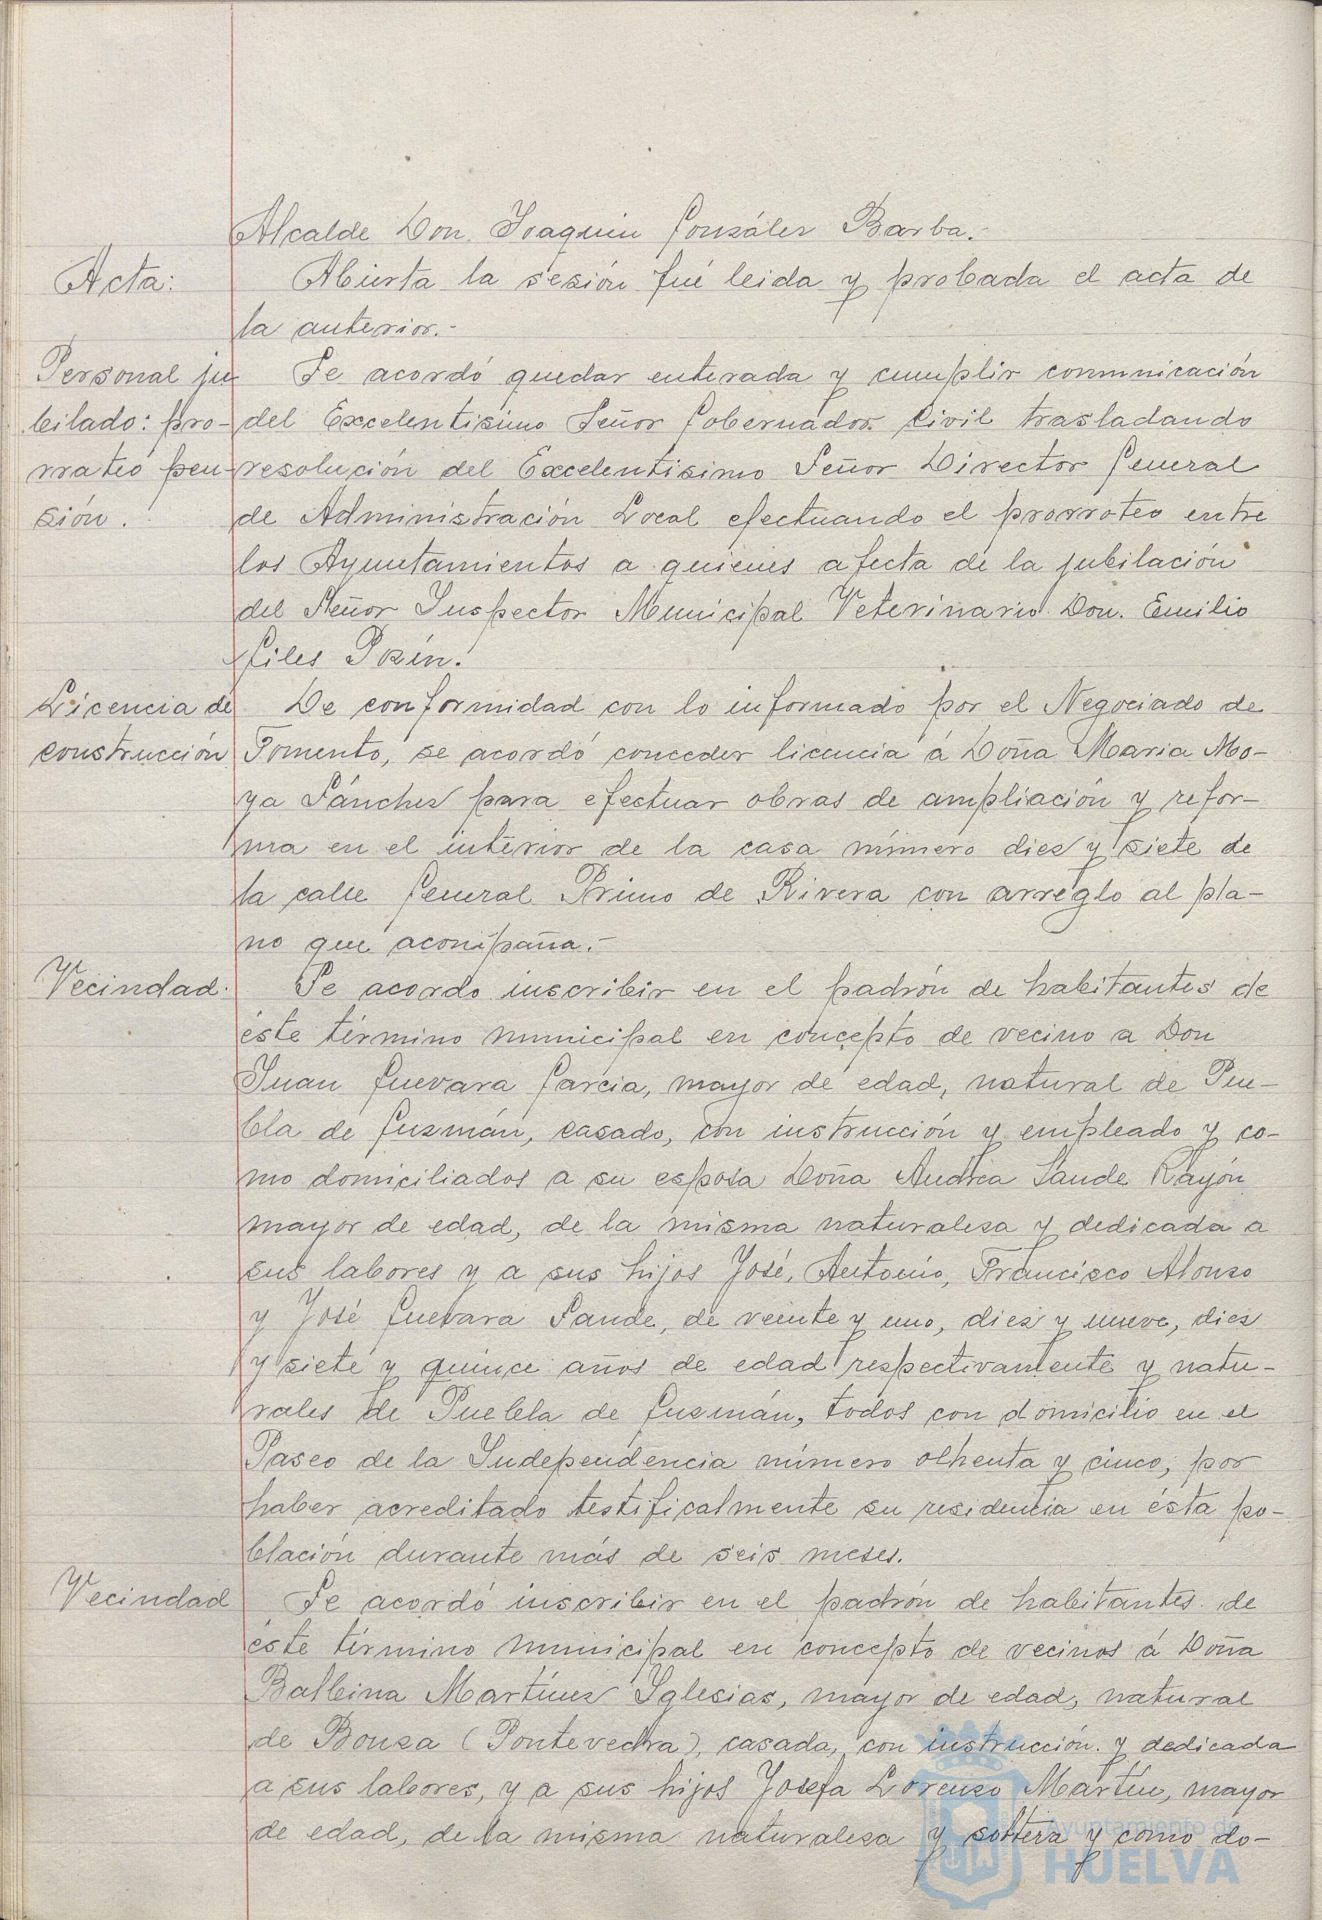 Alcalde Don Joaquin González Barba.-
Acta:
Abierta la sesión fué leida y probada el acta de
la anterior.-
Personal ju
bilado: pro-
rrateo pen-
sión.
Se acordó quedar enterada y cumplir comunicación
del Excelentisimo Señor Gobernador Civil trasladando
resolución del Excelentisimo Señor Director General
de Administración Local efectuando el prorroteo entre
los Ayuntamientos a quienes afecta de la jubilación
del Señor Inspector Municipal Veterinario Don Emilio
Giles
Licencia de
construcción
De conformidad con lo informado por el Negociado de
Fomento, se acordó conceder licencia á Doña Maria Mo-
ya Sánchez para efectuar obras de ampliación y refor-
ma en el interior de la casa número diez y siete de
la calle General Primo de Rivera con arreglo al pla-
no que acompaña.-
Vecindad.
Se acordo inscribir en el padrón de habitantes de
éste término municipal en concepto de vecino a Don
Juan Guevara Garcia, mayor de edad, natural de Pue-
bla de Guzmán, casado, con instrucción y empleado y co-
mo domiciliados a su esposa Doña Andrea Sande Rayón
mayor de edad, de la misma naturaleza y dedicada a
sus labores y a sus hijos José, Antonio, Francisco Alonso
y José Guevara Sande, de veinte y uno, diez y nueve, diez
y siete y quince años de edad respectivamente y natu-
rales de Puebla de Guzmán, todos con domicilio en el
Paseo de la Independencia número ochenta y cinco, por
haber acreditado testificalmente su residencia en ésta po-
blación durante más de seis meses.
Vecindad
Se acordó inscribir en el padrón de habitantes de
éste término municipal en concepto de vecinos á Doña
Balbina Martínez Yglesias, mayor de edad, natural
de Bouza (Pontevedra), casada, con instrucción y dedicada
a sus labores, y a sus hijos Josefa Lorenzo Martín, mayor
de edad, de la misma naturaleza y soltera y como do-
Ayuntamiento de
HUELVA